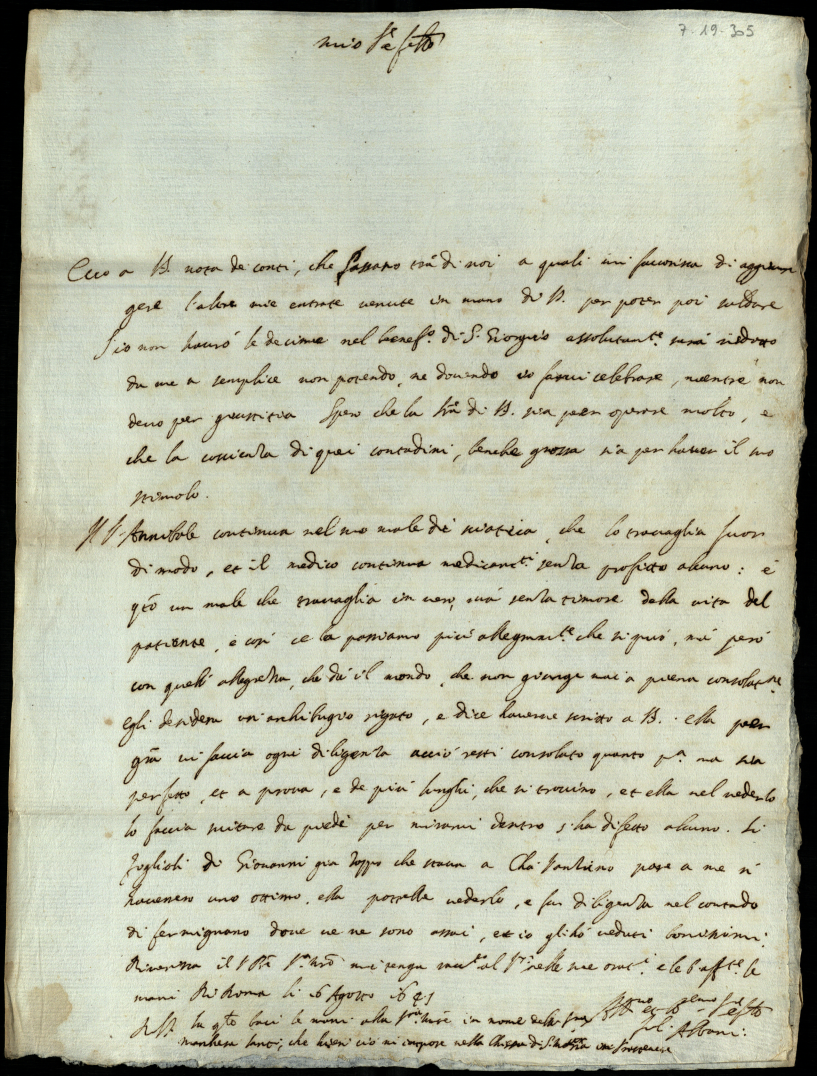 7-19-305
mio Sre
Ecco a V.S. nota de conti, che passano trà di noi a quali mi favorirà di aggiun
gere l'altre mie entrate venute in mano di V.S. per poter poi saldare
S'io non haurò le decime nel benefo. di S. Giorgio assolutante. sarà ridotto
da me a semplice non potendo, ne dovendo io farvi celebrare, mentre non
devo per giustitia Spero che la di V.S. sia per operare molto, e
che la coscienza di quei contadini, benche grossa sia per haver il suo
stimolo.
Il S. Annibale continua nel suo male di sciatica, che lo travaglia fuor
di modo, et il medico continua medicamti. senza profitto alcuno: è
qto un male che travaglia in vero, mà senza timore della vita del
patiente, e così ce la passiamo più allegramte. che si può, mà però
con quell'allegrezza, che dà il mondo, che non giunge mai a piena consolatne.
egli desidera un archibugio rigato, e dice haverne scritto a V.S. ella per
gra vi faccia ogni diligenza acciò resti consolato quanto pa. ma sia
perfetto, et a prova, e de più lunghi, che si trovino, et ella nel vederlo
lo faccia vitare da piedi per mirarvi dentro s'ha difetto alcuno. Li
figlioli di Giovanni già Zoppo che stava a Cha pare a me n'
havessero uno ottimo. ella potrebbe vederlo, e far diligenza nel contado
di fermignano dove ve ne sono assai, et io gli hò veduti bonissimi.
Riverisca il mi tenga al nelle sue orati. e le b. afte. le
mani Di Roma li 16 Agosto 1621
V.S. ha qto baci le mani alla in nome della
marchesa Santi, che hieri ciò m'impose nella Chiesa di S. Albani.